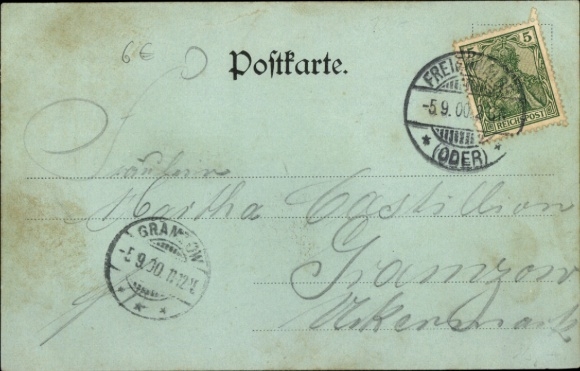 6 €
Postkarte.
5 5
REICHSPOST
FREIENWALDE
-5.9.00.
* (ODER) *
Fräulein
Martha Castillion
GRAMZOW
-5.9.00. 11-12V.
Gramzow
Uckermark